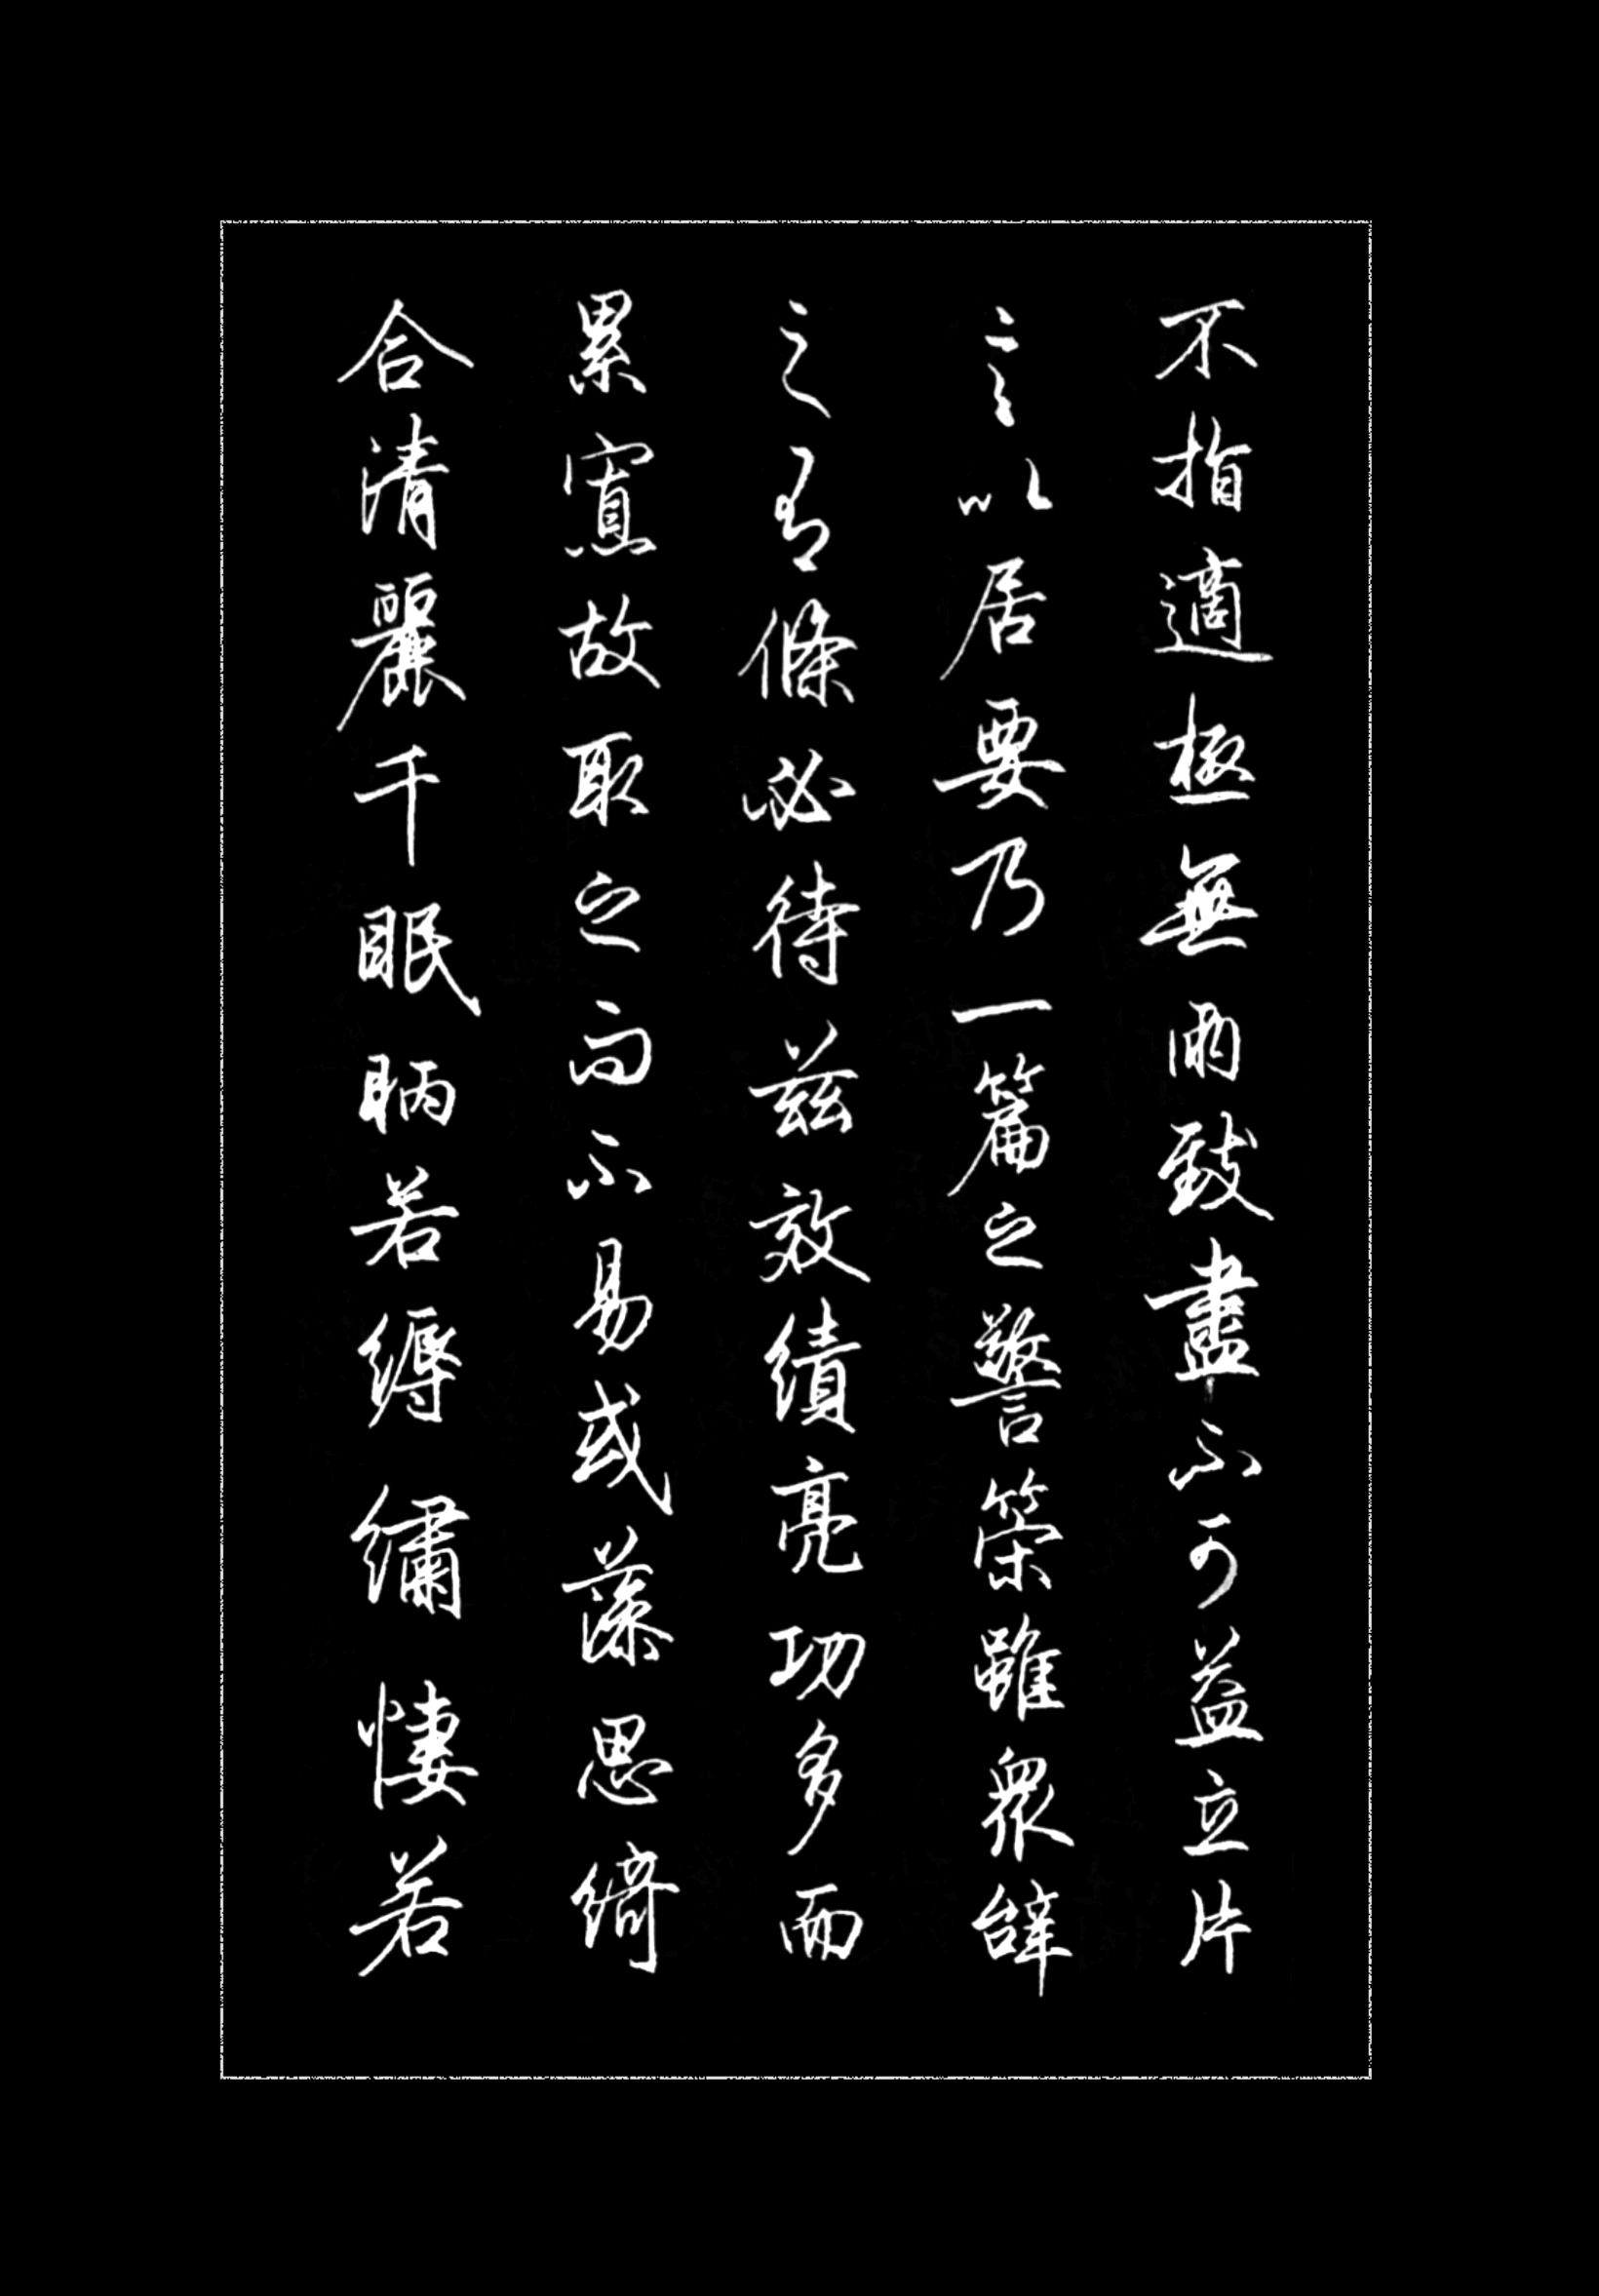 不指適極無兩致盡不可益立片
言以居要乃一篇之警策雖衆辭
之有條必待兹效績亮功多而
累寡故取之而不易或藻思綺
合清麗千眠昞若縟繡悽若